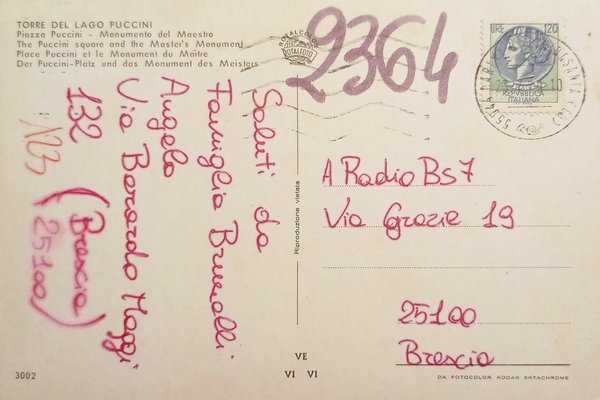 TORRE DEL LAGO PUCCINI
Piazza Puccini - Monumento del Maestro
The Puccini square and the Master's Monument
Place Puccini et le Monument du Maître
Der Puccini-Platz und das Monument des Meisters
ROTALCOLOR
ROTALFOTO
MILANO
2364
LIRE 120
REPVBBLICA
ITALIANA
Saluti da
Famiglia Brunelli
Angelo
Via Berardo Maggi
132 (Brescia)
25100
N23
Riproduzione vietata
A Radio Bs7
Via Grazie 19
25100
Brescia
3002
VE
VI VI
DA FOTOCOLOR KODAK EKTACHROME